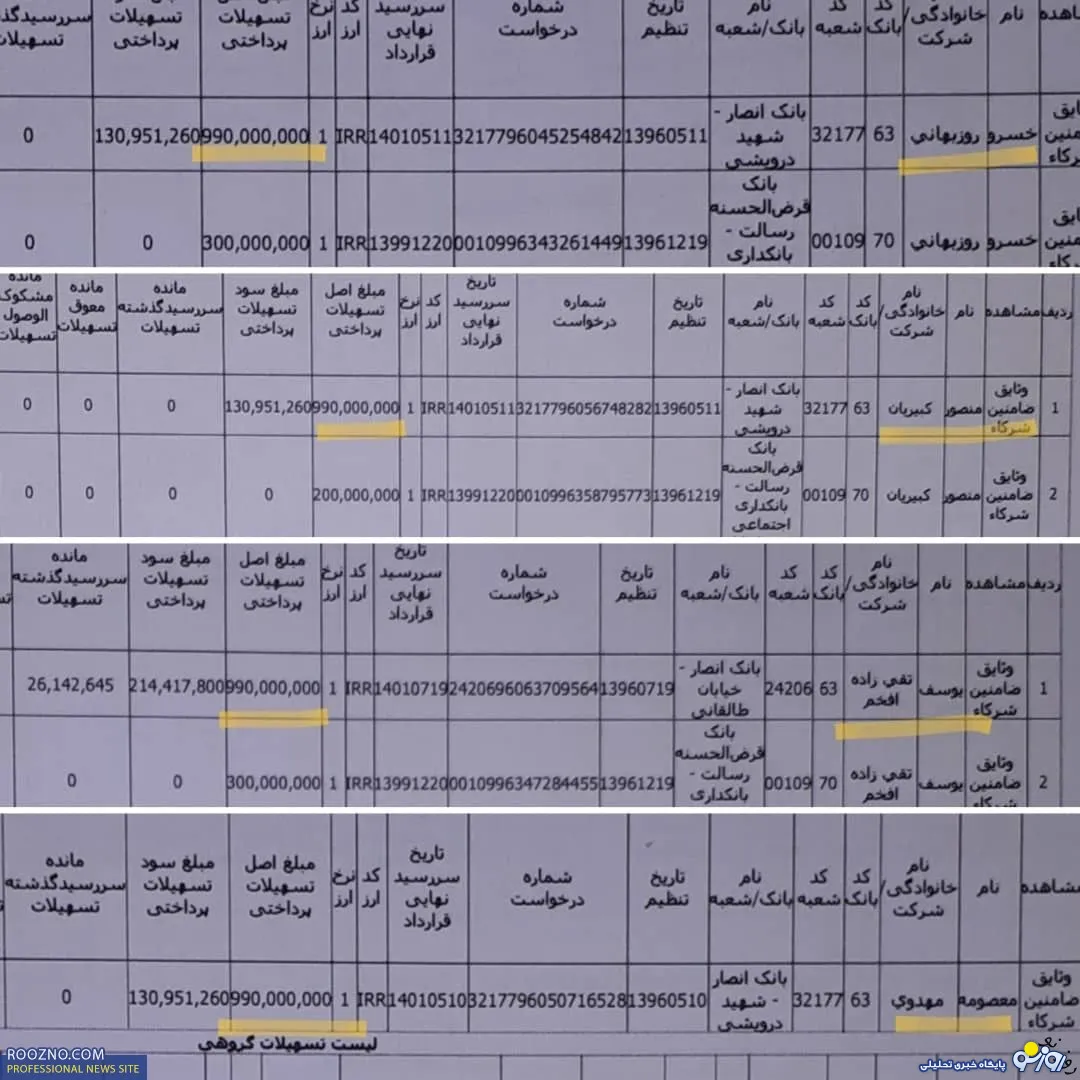 مشاهده نام خانوادگی/ شرکت کد بانک کد شعبه نام بانک/شعبه تاریخ تنظیم شماره درخواست سررسید نهایی قرارداد کد ارز نرخ ارز تسهیلات پرداختی تسهیلات پرداختی سررسیدگذشته تسهیلات
وثایق ضامنین شرکاء خسرو روزبهاني 63 32177 بانک انصار - شهید درویشی 13960511 3217796045254842 14010511 IRR 1 990,000,000 130,951,260 0
خسرو روزبهاني 70 00109 بانک قرض‌الحسنه رسالت - بانکداری 13961219 0010996343261449 13991220 IRR 1 300,000,000 0 0
ردیف مشاهده نام نام خانوادگی/ شرکت کد بانک کد شعبه نام بانک/شعبه تاریخ تنظیم شماره درخواست تاریخ سررسید نهایی قرارداد کد ارز نرخ ارز مبلغ اصل تسهیلات پرداختی مبلغ سود تسهیلات پرداختی مانده سررسیدگذشته تسهیلات مانده معوق تسهیلات مانده مشکوک الوصول تسهیلات
1 وثایق ضامنین شرکاء منصور کبیریان 63 32177 بانک انصار - شهید درویشی 13960511 3217796056748282 14010511 IRR 1 990,000,000 130,951,260 0 0 0
2 وثایق ضامنین شرکاء منصور کبیریان 70 00109 بانک قرض‌الحسنه رسالت - بانکداری اجتماعی 13961219 0010996358795773 13991220 IRR 1 200,000,000 0 0 0 0
ردیف مشاهده نام نام خانوادگی/ شرکت کد بانک کد شعبه نام بانک/شعبه تاریخ تنظیم شماره درخواست تاریخ سررسید نهایی قرارداد کد ارز نرخ ارز مبلغ اصل تسهیلات پرداختی مبلغ سود تسهیلات پرداختی مانده سررسیدگذشته تسهیلات
1 وثایق ضامنین شرکاء یوسف تقي زاده افخم 63 24206 بانک انصار - خیابان طالقانی 13960719 2420696063709564 14010719 IRR 1 990,000,000 214,417,800 26,142,645
2 وثایق ضامنین شرکاء یوسف تقي زاده افخم 70 00109 بانک قرض‌الحسنه رسالت - بانکداری 13961219 0010996347284455 13991220 IRR 1 300,000,000 0 0
مشاهده نام نام خانوادگی/ شرکت کد بانک کد شعبه نام بانک/شعبه تاریخ تنظیم شماره درخواست تاریخ سررسید نهایی قرارداد کد ارز نرخ ارز مبلغ اصل تسهیلات پرداختی مبلغ سود تسهیلات پرداختی مانده سررسیدگذشته تسهیلات
وثایق ضامنین شرکاء معصومه مهدوي 63 32177 بانک انصار - شهید درویشی 13960510 3217796050716528 14010510 IRR 1 990,000,000 130,951,260 0
لیست تسهیلات گروهی
ROOZNO.COM
PROFESSIONAL NEWS SITE
روز نو
پایگاه خبری تحلیلی